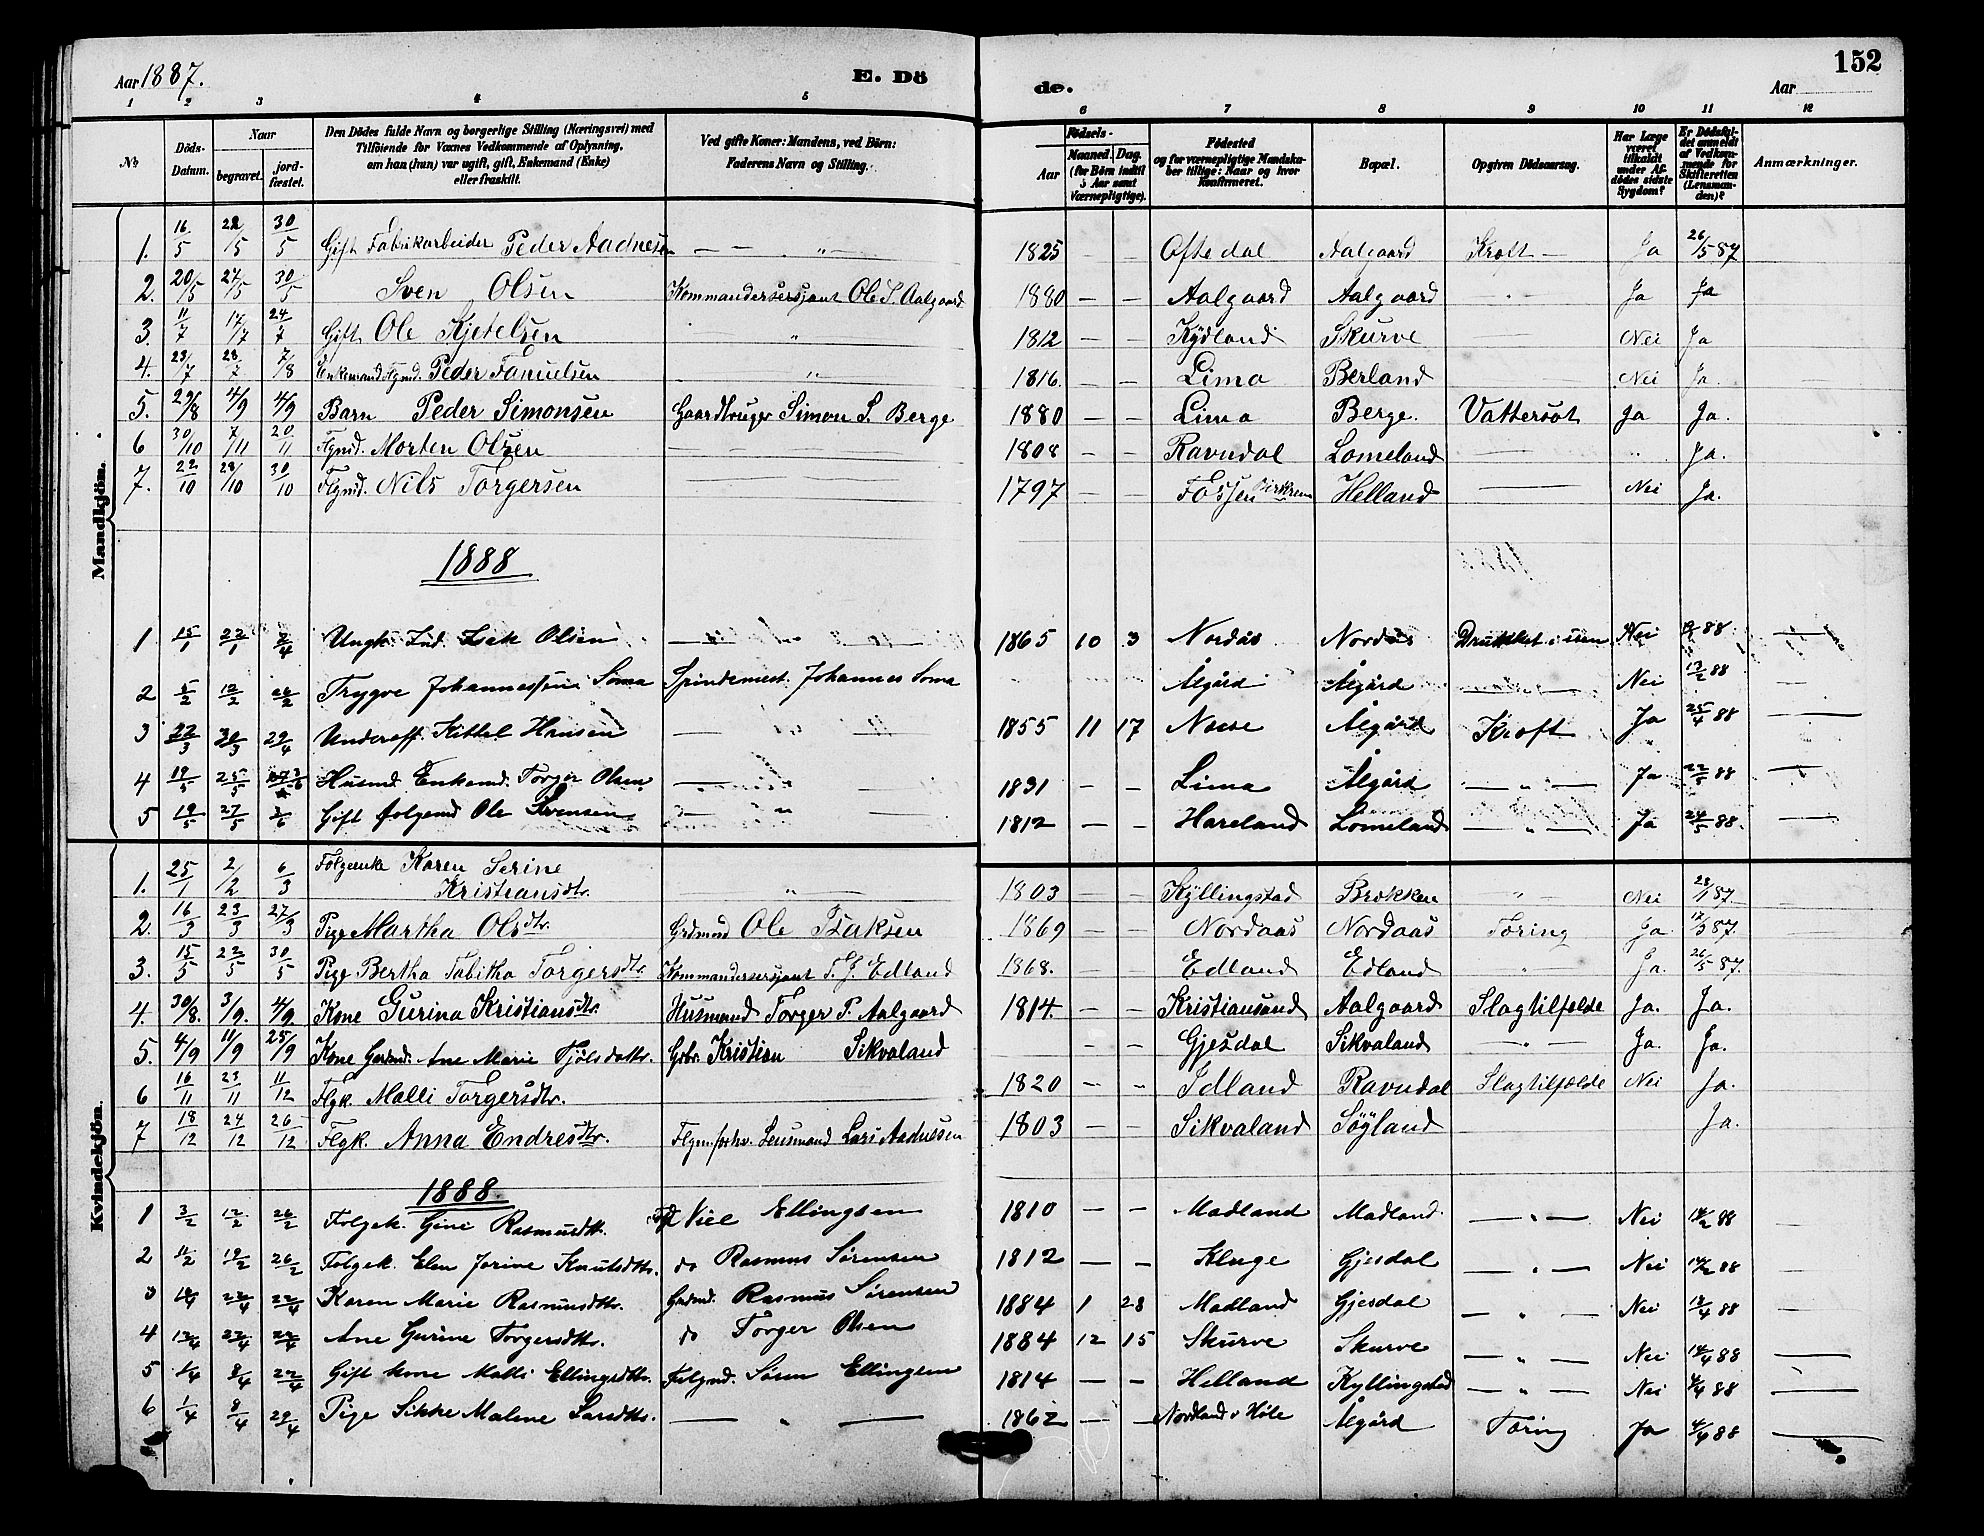 152
Aar 1887. E. Dö de. Aar
1 2 3 4 5 6 7 8 9 10 11 12
№ Döds-Datum. Naar begravet. jord-fæstet. Den Dödes fulde Navn og borgerlige Stilling (Næringsvei) med Tilföiende for Voxnes Vedkommende af Oplysning, om han (hun) var ugift, gift, Enkemand (Enke) eller fraskilt. Ved gifte Koner: Mandens, ved Börn: Faderens Navn og Stilling. Födsels- Aar Maaned. Dag. (for Börn indtil 5 Aar samt Værnepligtige). Födested og for værnepligtige Mandskaber tillige: Naar og hvor Konfirmeret. Bopæl. Opgiven Dödsaarsag. Har Læge været tilkaldt under Afdödes sidste Sygdom? Er Dödsfaldet anmeldt af Vedkommende for Skifteretten (Lensmanden)? Anmærkninger.
Mandkjön.
1. 16/5 22/5 30/5 Gift Fabrikarbeider Peder Aadnesen — — „ — 1825 — — Oftedal Aalgaard Kræft — Ja 26/5 87
2. 20/5 27/5 30/5 Sven Olsen Kommandersersjant Ole S. Aalgaard 1880 — — Aalgaard Aalgaard — „ — Ja Ja
3. 11/7 17/7 24/7 Gift Ole Kjetelsen „ 1812 — — Kydland Skurve — Nei Ja
4. 23/7 28/7 7/8 Enkemand Flgmd. Peder Samuelsen „ 1816. — — Lima Berland — Nei Ja.
5. 29/8 4/9 4/9 Barn Peder Simonsen Gaardbruger Simon S. Berge 1880 — — Lima Berge. Vattersot Ja Ja.
6 30/10 7/11 20/11 Flgmd. Morten Olsen — 1808 — — Ravndal Lomeland — „ Ja.
7. 22/10 28/10 30/10 Flgmd. Nils Torgersen — 1797 — — Fossen Birkrem Helland — Nei Ja.
1888
1 15/1 22/1 2/4 Ungk. Ind. Isak Olsen — „ — 1865 10 3 Nordås Nordås Druknet i isen Nei 88 —
2 5/2 12/2 26/2 Trygve Johannessen Soma Spindemest. Johannes Soma Ålgård Ålgård — Nei 13/2 88 —
3 22/3 30/3 29/4 Underoff. Kittel Hansen — „ — 1855 11 17 Ålgård Kræft Ja 25/4 88 —
4 19/5 25/5 Husmd. Enkemd. Torger Olsen — 1831 — — Lima Ålgård — „ — Ja 22/5 88 —
5 19/5 27/5 3/6 Gift folgemd Ole Svensen — „ — 1812 — — Hareland Lomeland — „ — Ja 24/5 88. —
Kvindekjön.
1. 25/1 2/2 6/3 Folgeenke Karen Serine
Kristiansdtr. — „ — 1803 — — Kyllingstad Brekken „ Nei 28/1 87.
2. 16/3 23/3 27/3 Pige Martha Olsdtr. Grdmnd Ole Isaksen 1869 — — Nordaas Nordaas Tæring Ja 17/3 87.
3. 15/5 22/5 30/5 Pige Bertha Tabitha Torgersdtr. Kommandersersjant T. J. Edland 1868. — — Edland Edland „ Ja. 26/5 87.
4. 30/8. 3/9. 4/9 Kone Gurina Kristiansdtr. Husmand Torger P. Aalgaard 1814. — — Kristiansand Aalgaard Slagtilfelde Ja. Ja.
5. 4/9 11/9 25/9 Kone Ane Marie Gbr. Kristian Sikvaland — — Gjesdal Sikvaland — „ — Ja. Ja.
6 16/11 23/11 11/12 Flgk. Malli Torgersdtr. 1820 — — Idland Ravndal Slagtilfælde Nei Ja.
7 18/12 24/12 26/12 Flgk. Anna Endresdtr. Flgm. forhv. Lensmand Lars Aadnesen 1803 — — Sikvaland Søyland Ja.
1888
1 3/2 12/2 26/2 Folgek. Gini Rasmusdtr. Niel Ellingsen 1810 — — Madland Madland. — „ — Nei 14/2 88 —
2 11/2 19/2 26/2 Folgek. Elen Jorine Knutsdtr. do Rasmus Sørensen 1812 — — Kluge Gjesdal — „ — Nei 14/2 88 —
3 22/4 22/4 Karen Marie Rasmusdtr. Grdmd. Rasmus Sørensen 1884 1 28 Madland Gjesdal — „ — Nei 13/4 88 —
4 13/4 22/4 22/4 Ane Gurine Torgersdtr. do Torger Olsen 1884 12 15 Skurve Skurve — „ — Nei 14/4 88 —
5 1/4 8/4 22/4 Gift kone Malli Ellingsdtr. Folgmd. Søren Ellingsen 1814 — — Helland Kyllingstad — „ — Nei 4/4 88 —
6 1/4 8/4 29/4 Pige Sikke Malene Larsdtr. — „ — 1862 — — Nordland i Høle Ålgård Tæring Ja 4/4 88 —